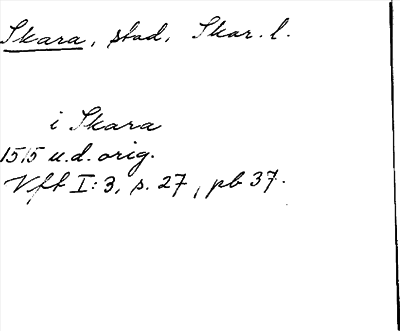 Skara, stad, Skar. l.
i Skara
1515 u.d. orig.
Vff I:3, s. 27, pb 37.